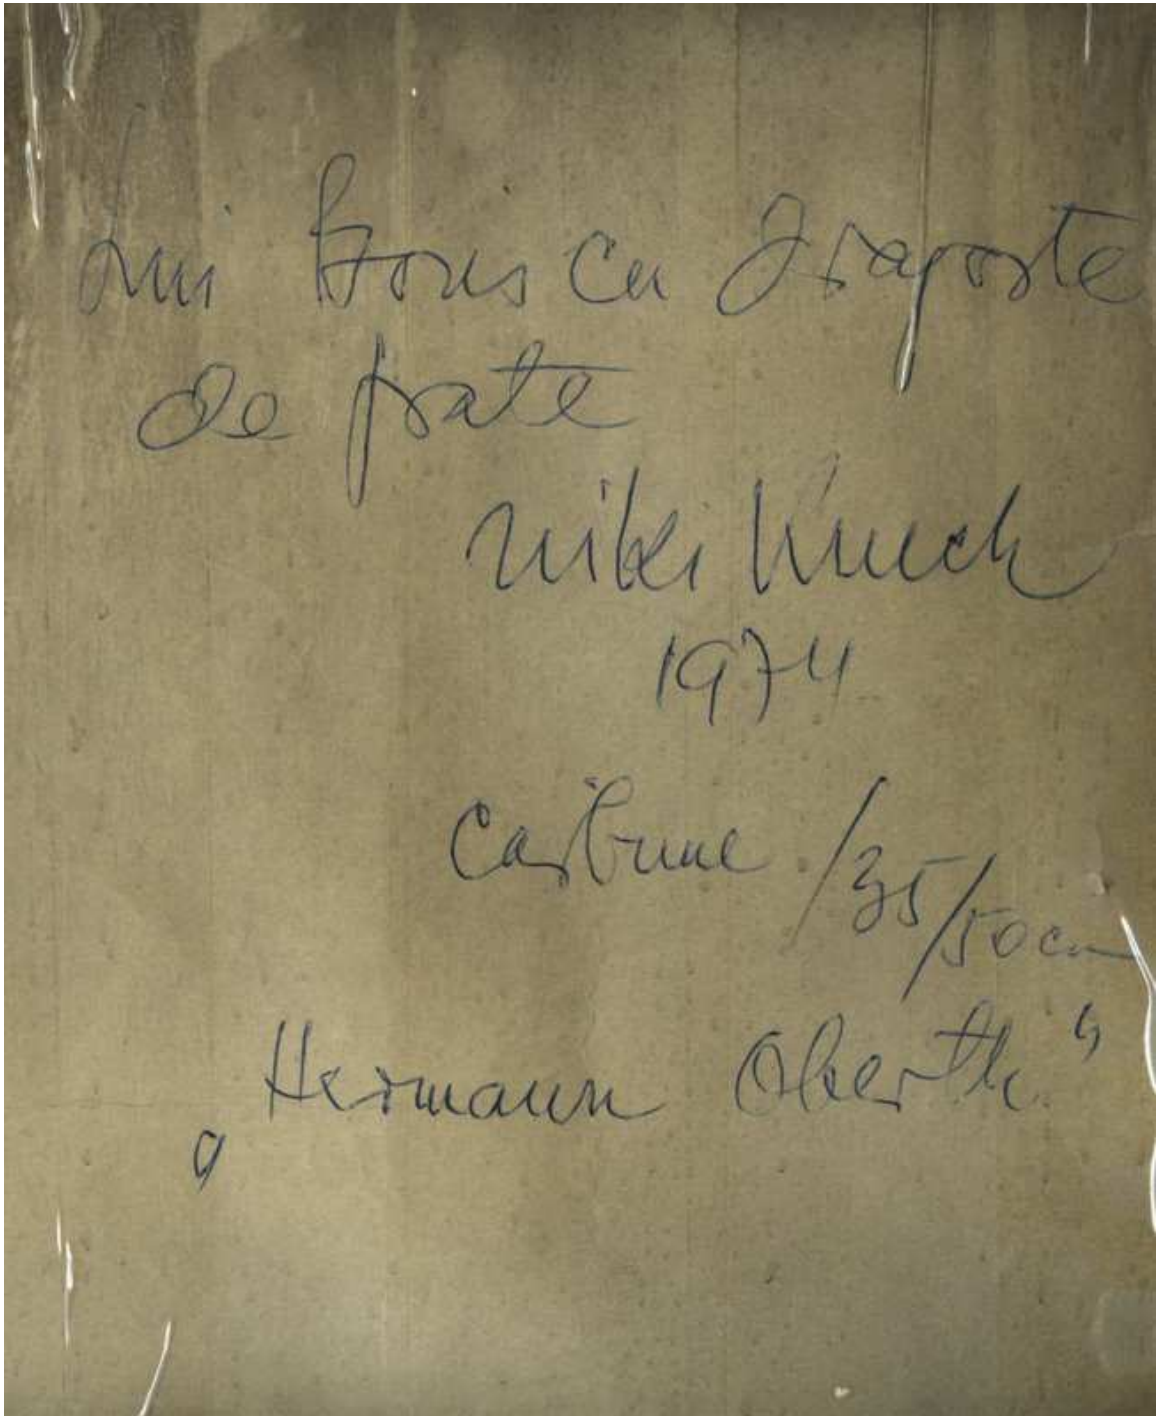 Lui Boris cu dragoste
de frate
Niki
1974
Cărbune /35/50cm
„Hermann Oberth"